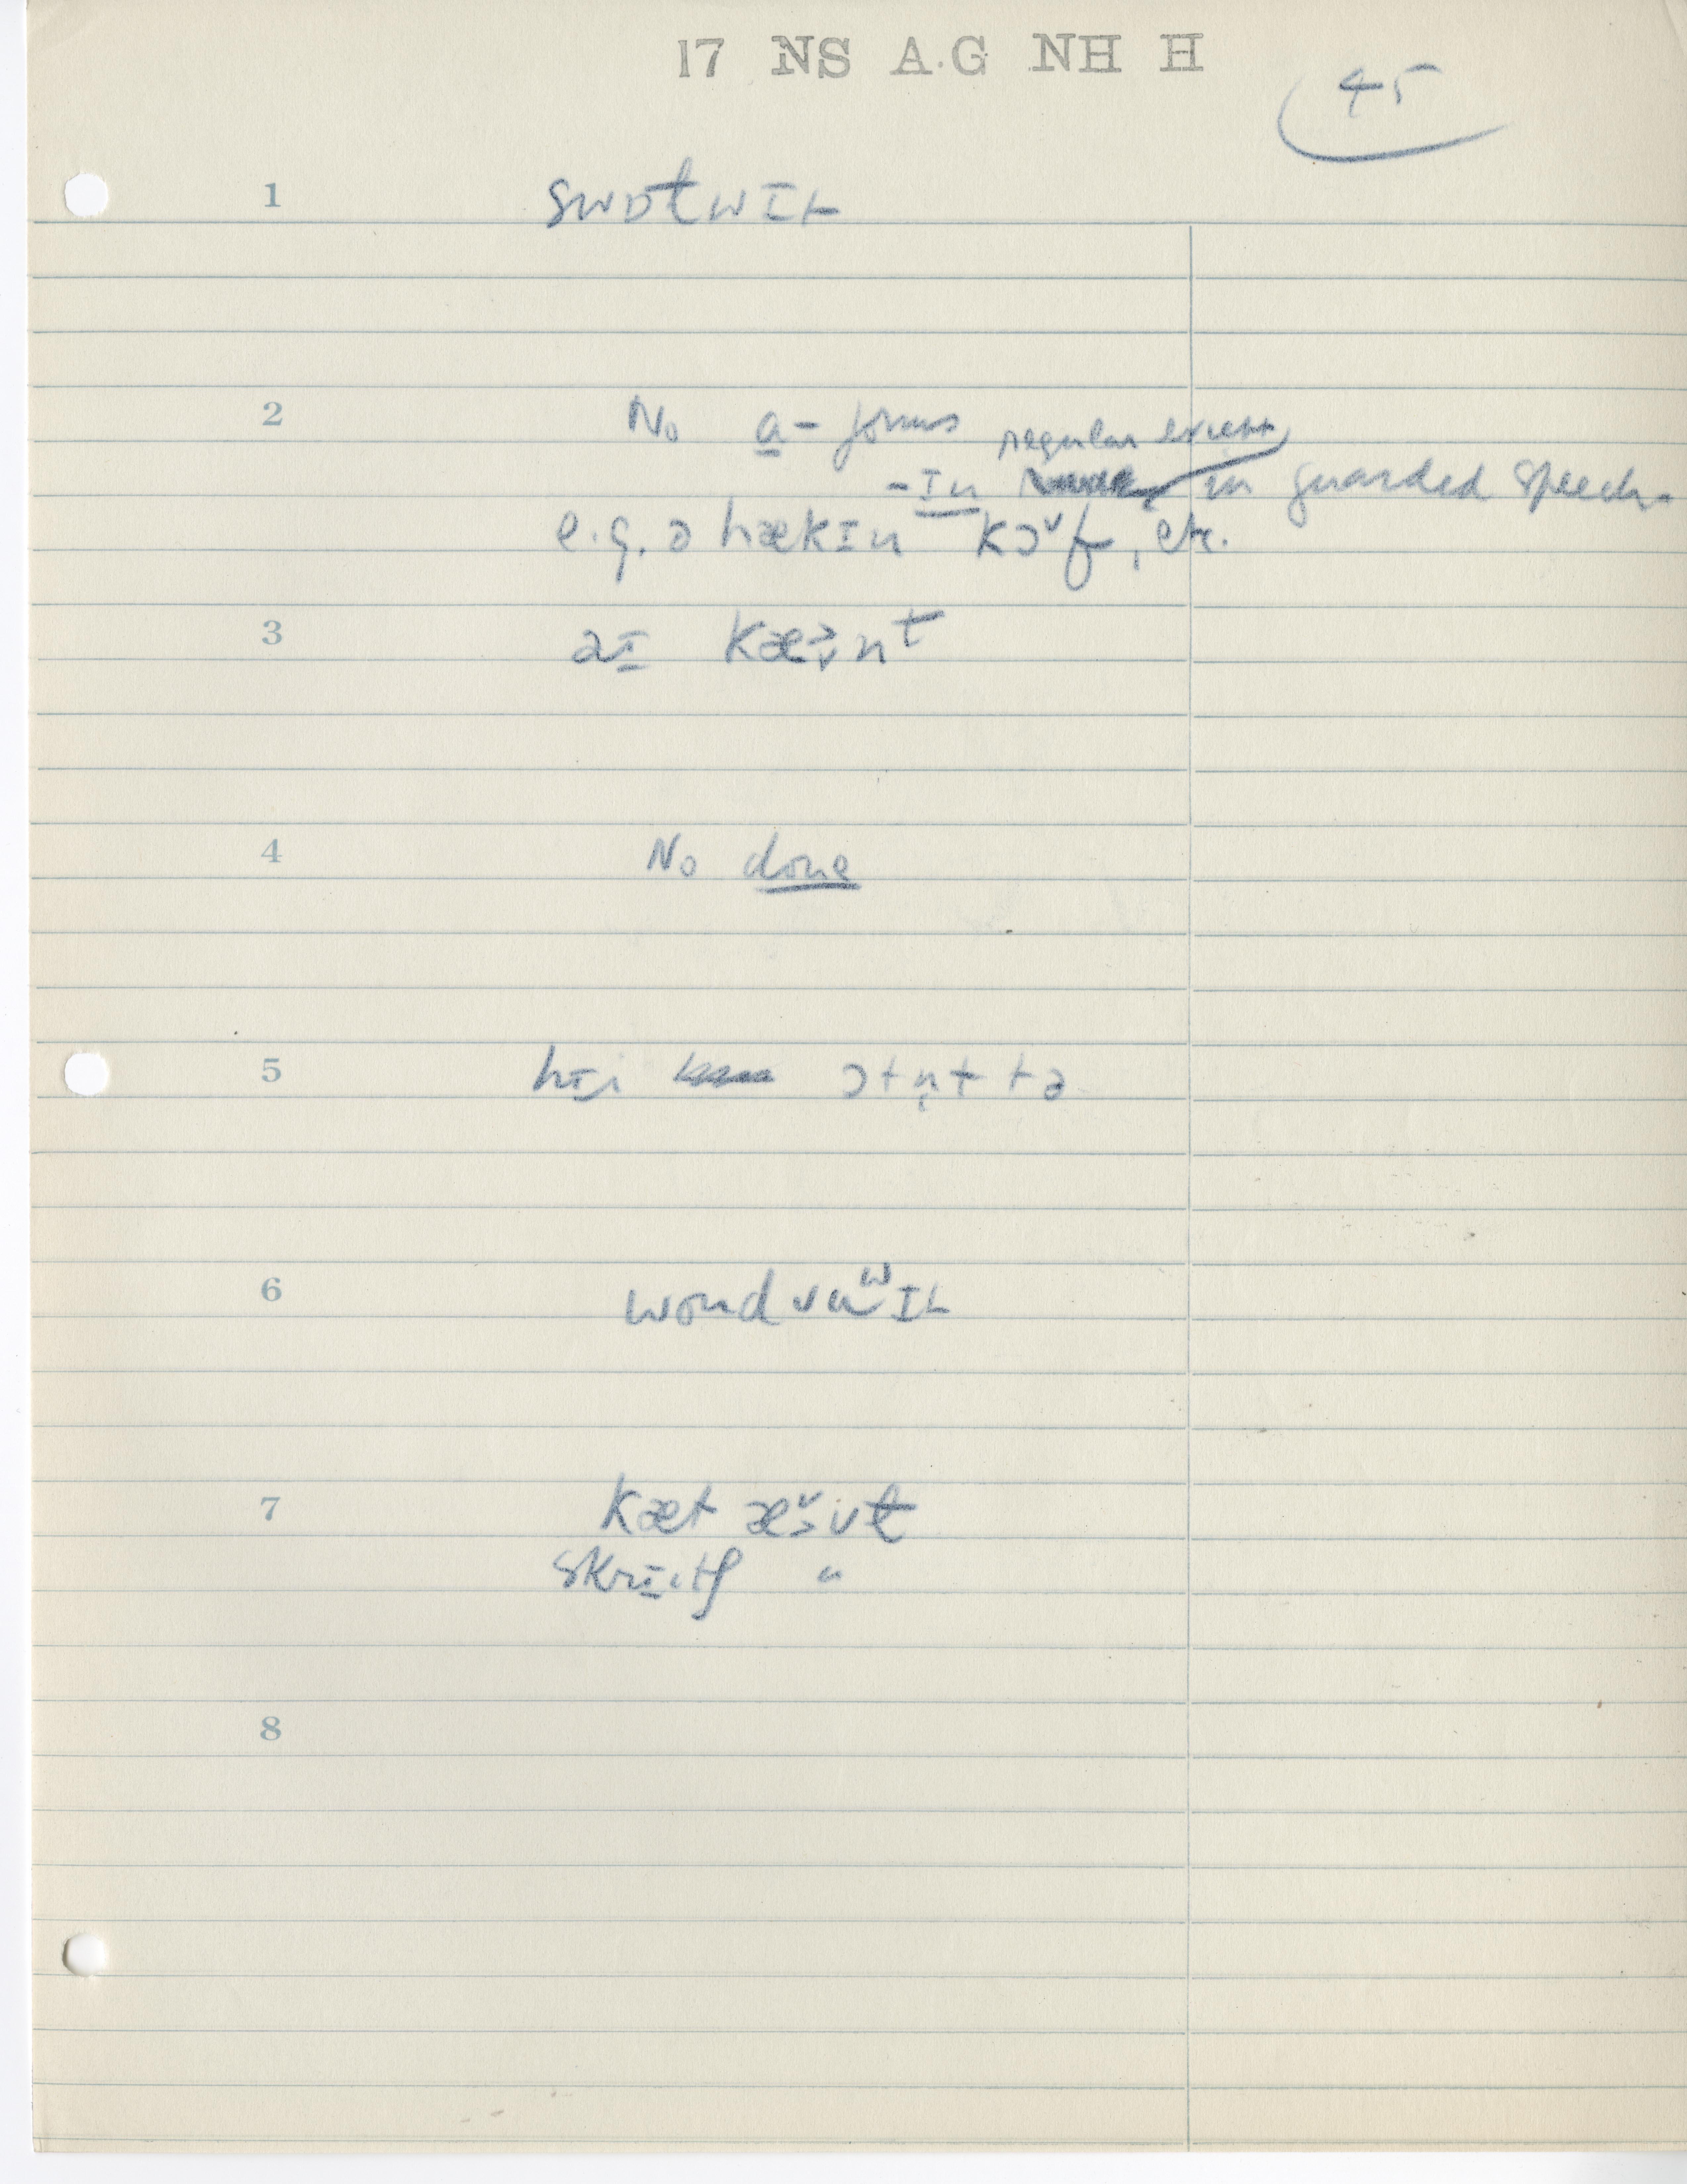 17 NS A.G NH H
45
1 swɒtwɪt
2 No a- forms regular except
-ɪn in guarded speech.
e.g. ə hækɪn kɔ˅f, etc.
3 aɪ kæ nt
4 No done
5 hɪi ɔtn̩t tə
6
7 kæt
skrɪitʃ "
8